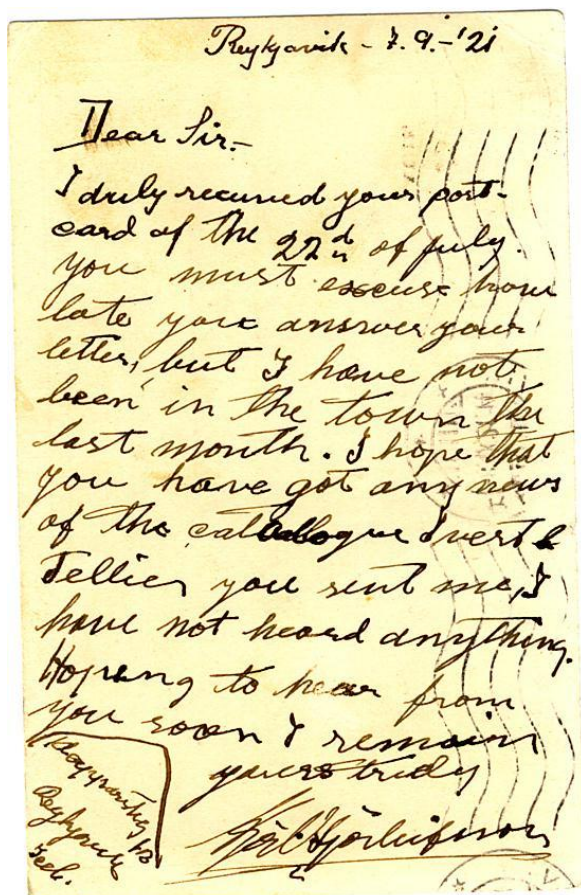 Reykjavik - 7. 9. - '21
Dear Sir.-
I duly recieved your post-
card of the 22d of july.
you must excuse how
late you answer your
letter, but I have not
been in the town the
last month. I hope that
you have got any news
of the catalogue Yvert &
Tellier you sent me, I
have not heard anything.
Hoping to hear from
you soon I remain
yours truly
Reykjavik